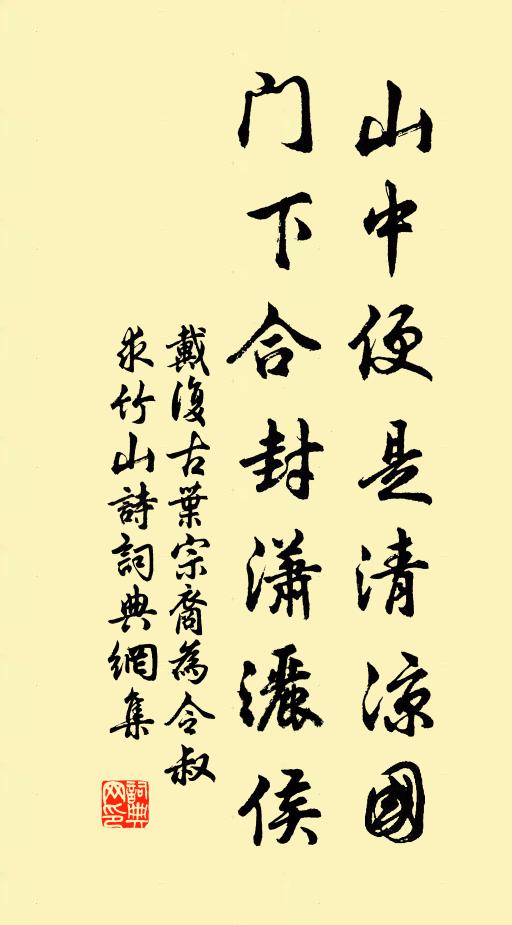 山中便是清涼國
门下合封瀟灑侯
戴復古葉宗裔為令叔
求竹山詩詞典網集
詞典
网印